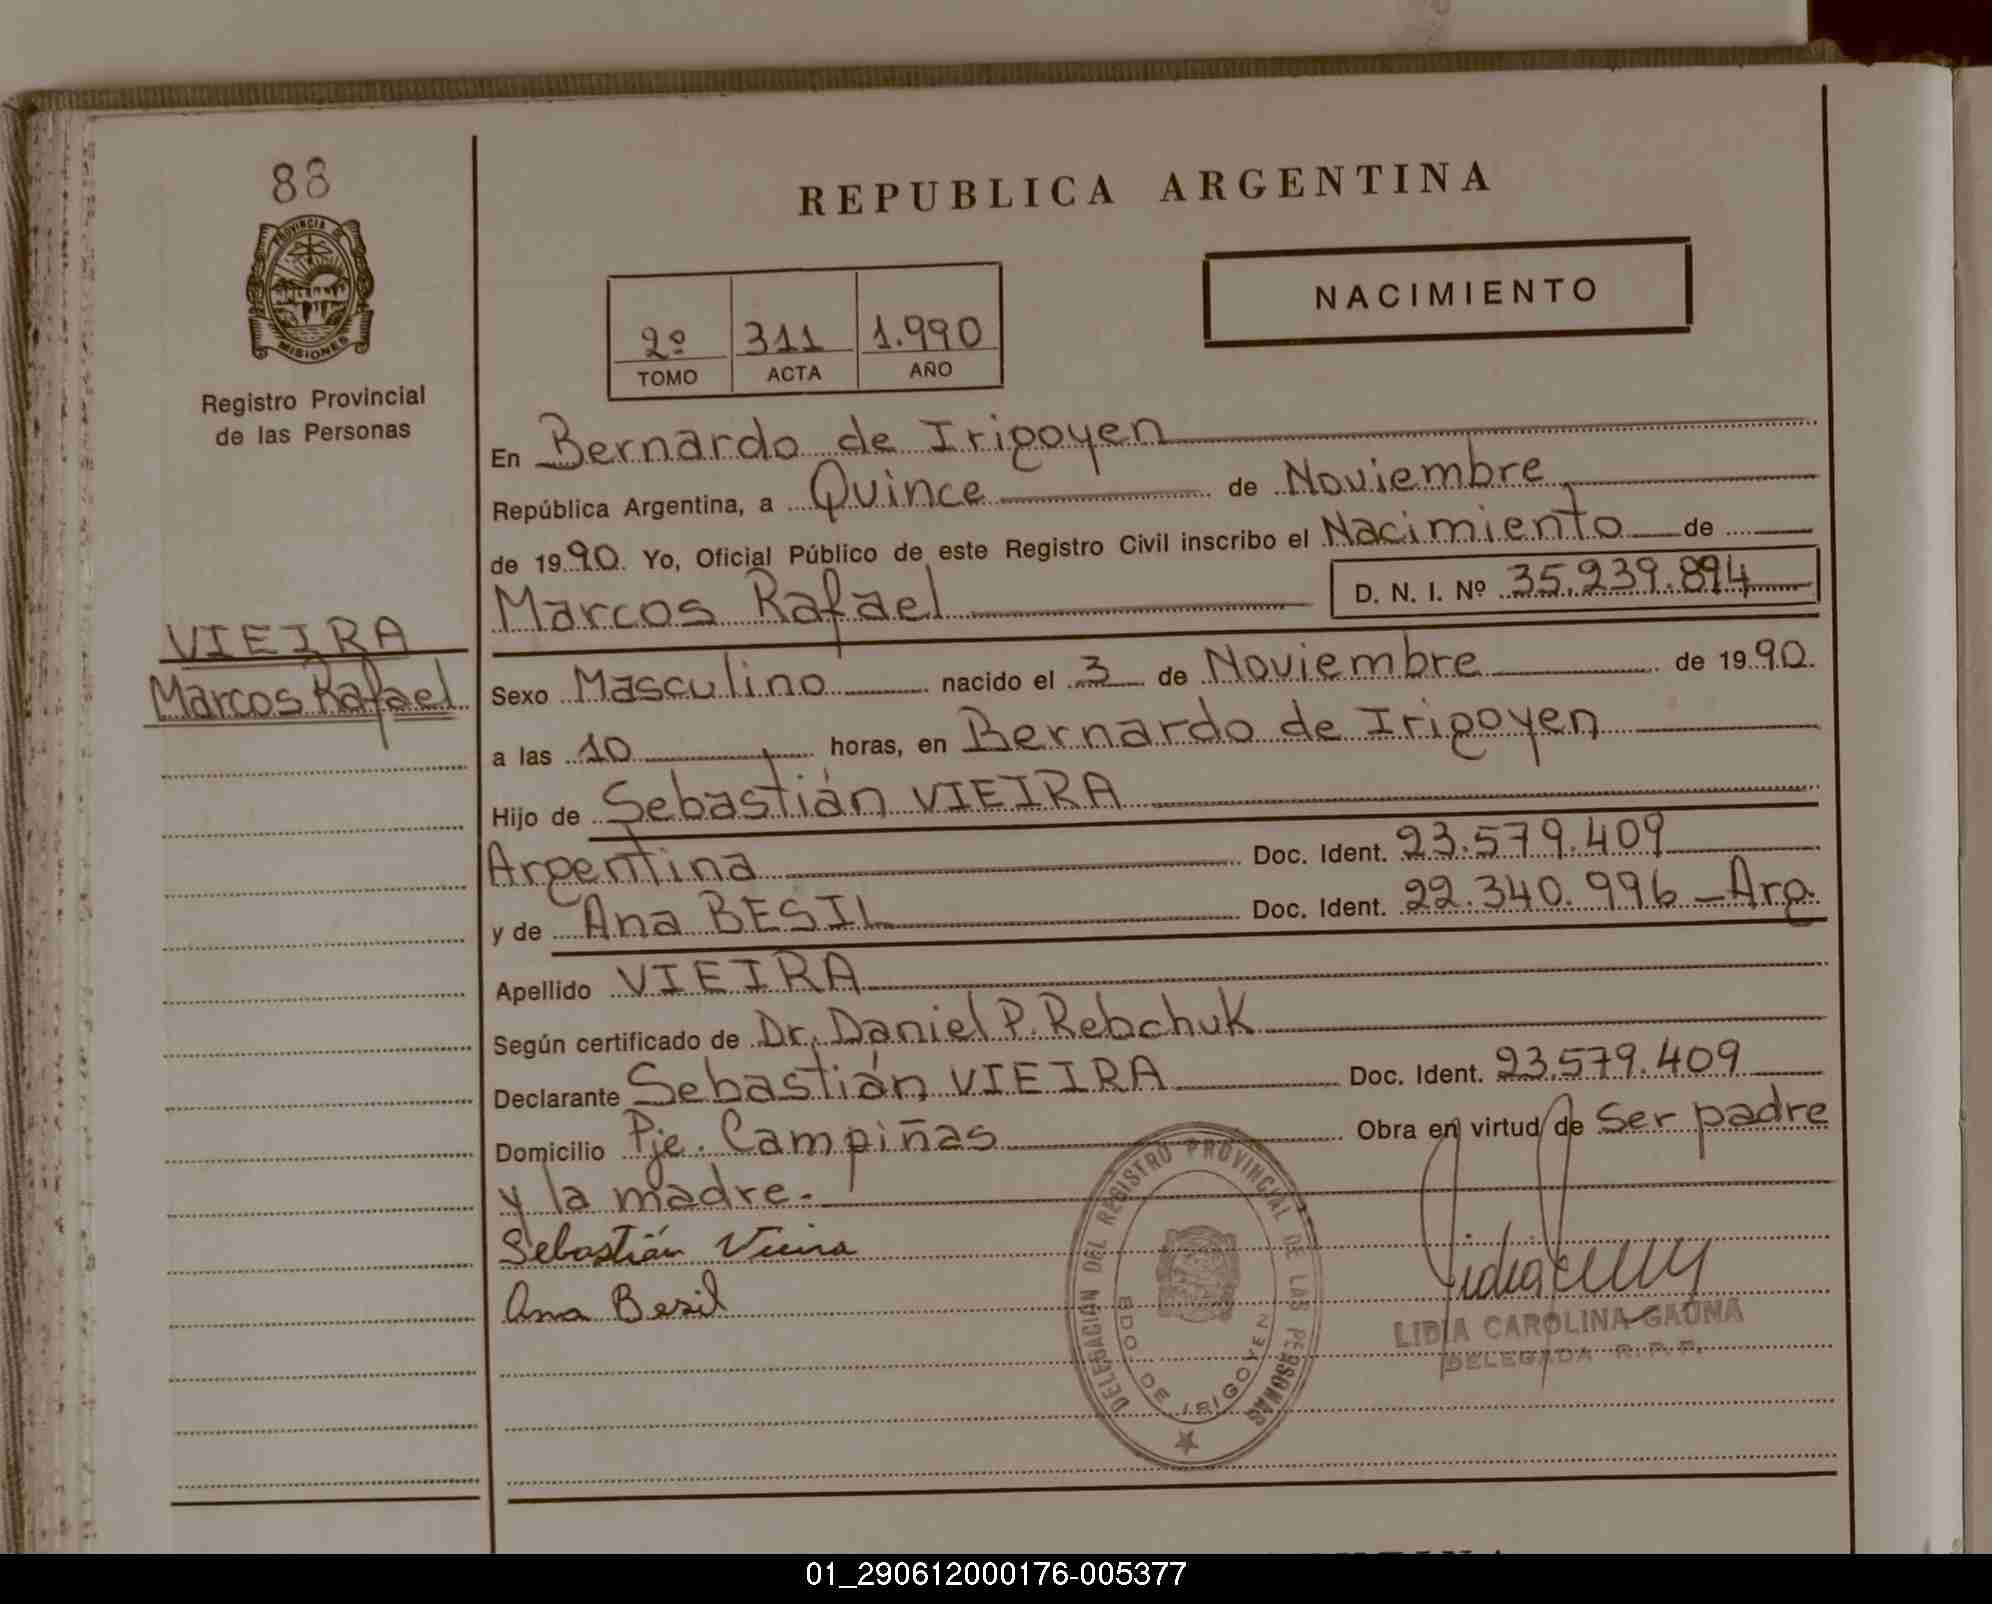 88
REPUBLICA ARGENTINA
PROVINCIA DE
MISIONES
NACIMIENTO
2º 311 1.990
TOMO ACTA AÑO
Registro Provincial
de las Personas
En Bernardo de Irigoyen
República Argentina, a Quince de Noviembre
de 1990. Yo, Oficial Público de este Registro Civil inscribo el Nacimiento de
Marcos Rafael D. N. I. Nº 35.239.894
VIEIRA
Marcos Rafael
Sexo Masculino nacido el 3 de Noviembre de 1990.
a las 10 horas, en Bernardo de Irigoyen
Hijo de Sebastián VIEIRA
Argentina Doc. Ident. 23.579.409
y de Ana BESIL Doc. Ident. 22.340.996 - Arg
Apellido VIEIRA
Según certificado de Dr. Daniel P. Rebchuk
Declarante Sebastián VIEIRA Doc. Ident. 23.579.409
Domicilio Pje. Campiñas Obra en virtud de ser padre
y la madre.-
Sebastián Vieira
Ana Besil
DELEGACIÓN DEL REGISTRO PROVINCIAL DE LAS PERSONAS
BDO DE IRIGOYEN
LIDIA CAROLINA GAUNA
DELEGADA R.P.P.
01_290612000176-005377